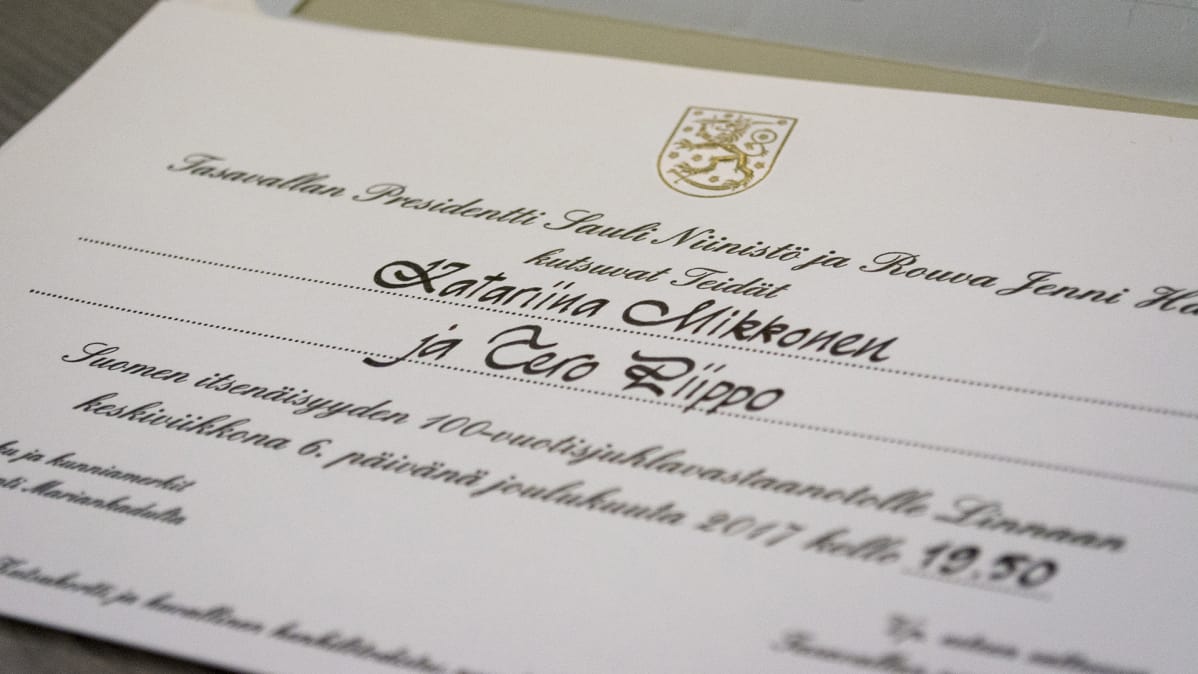 Tasavallan Presidentti Sauli Niinistö ja Rouva Jenni Ha
kutsuvat Teidät
Katariina Mikkonen
ja Tero Piippo
Suomen itsenäisyyden 100-vuotisjuhlavastaanotolle Linnaan
keskiviikkona 6. päivänä joulukuuta 2017 kello 19.50
ja kunniamerkit
Mariankadulta
Kutsukortti ja kuvallinen